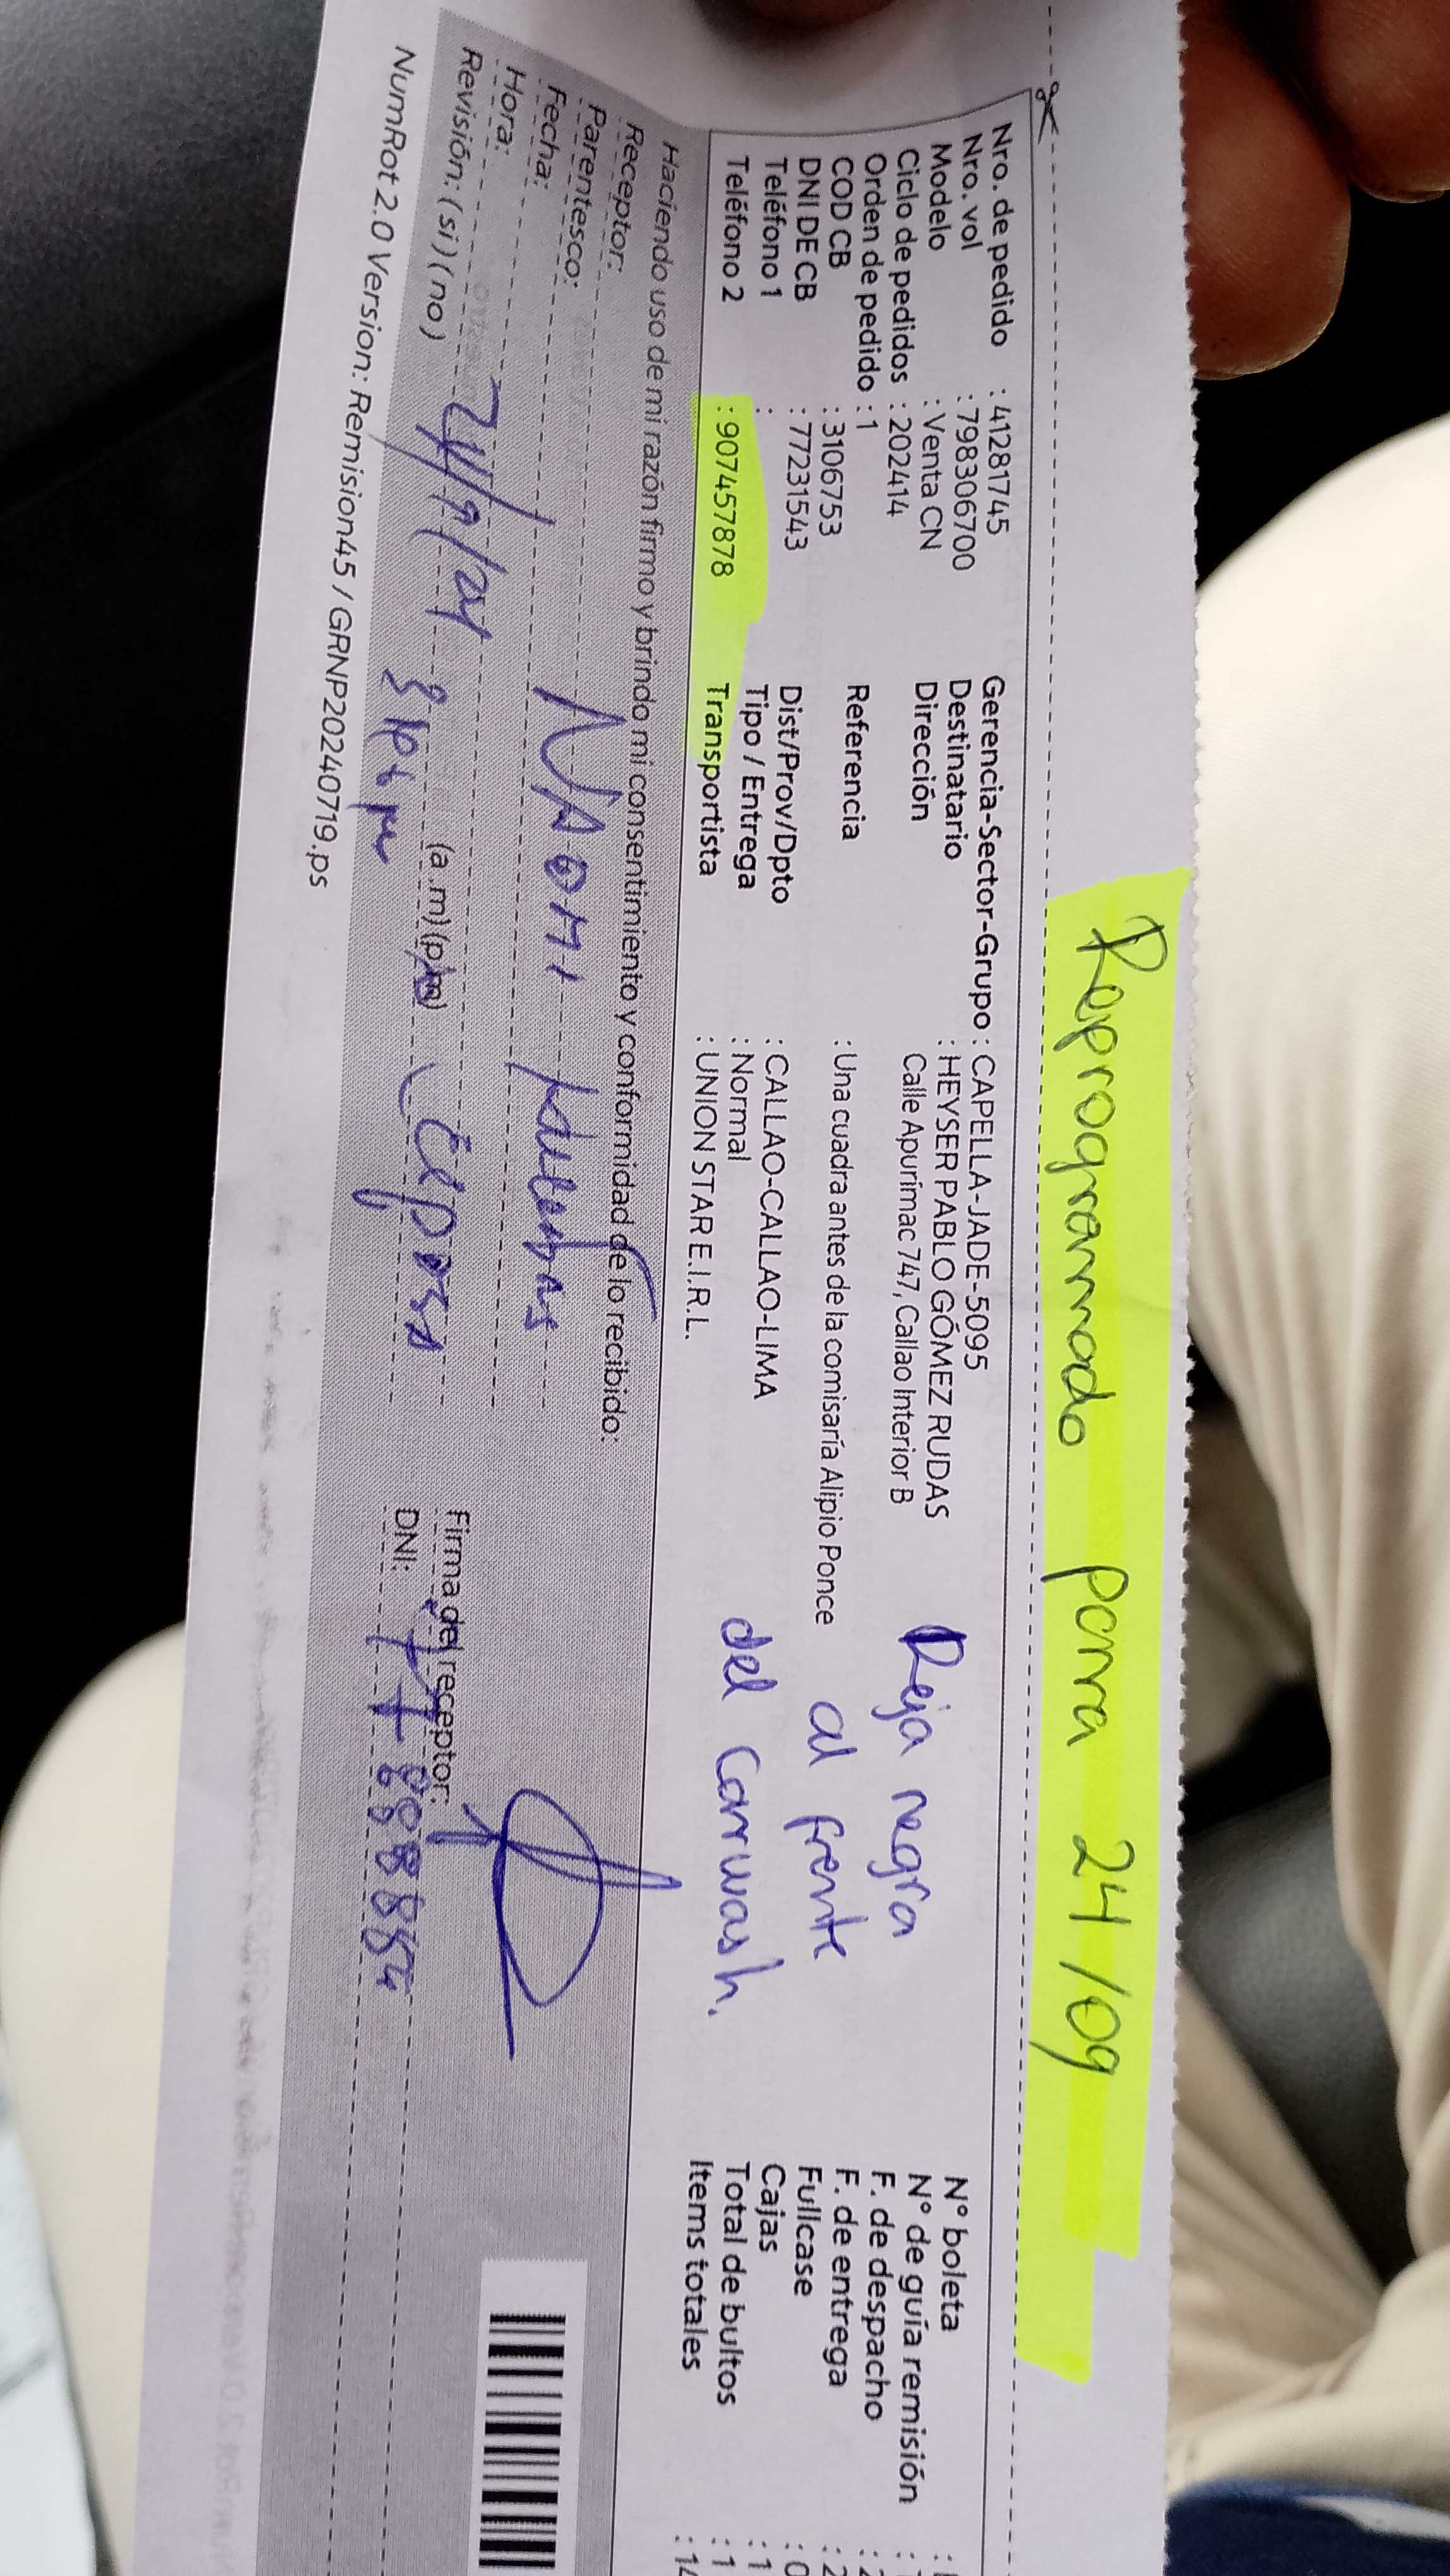 Reprogramado para 24/09
Nro. de pedido : 41281745
Nro. vol : 798306700
Modelo : Venta CN
Ciclo de pedidos : 202414
Orden de pedido : 1
COD CB : 3106753
DNI DE CB : 77231543
Teléfono 1 :
Teléfono 2 : 907457878
Gerencia-Sector-Grupo : CAPELLA-JADE-5095
Destinatario : HEYSER PABLO GÓMEZ RUDAS
Dirección Calle Apurímac 747, Callao Interior B
Referencia : Una cuadra antes de la comisaría Alipio Ponce
Dist/Prov/Dpto : CALLAO-CALLAO-LIMA
Tipo / Entrega : Normal
Transportista : UNION STAR E.I.R.L.
Reja negra
al frente
del Carwash.
N° boleta :
N° de guía remisión :
F. de despacho : 2
F. de entrega : 2
Fullcase : 0
Cajas : 1
Total de bultos : 1
Items totales : 14
Haciendo uso de mi razón firmo y brindo mi consentimiento y conformidad de lo recibido:
Receptor: NAOMI
Parentesco:
Fecha:
Hora: (a.m) (p.m) esposa
Revisión: (si) (no)
Firma del receptor:
DNI:
NumRot 2.0 Version: Remision45 / GRNP20240719.ps